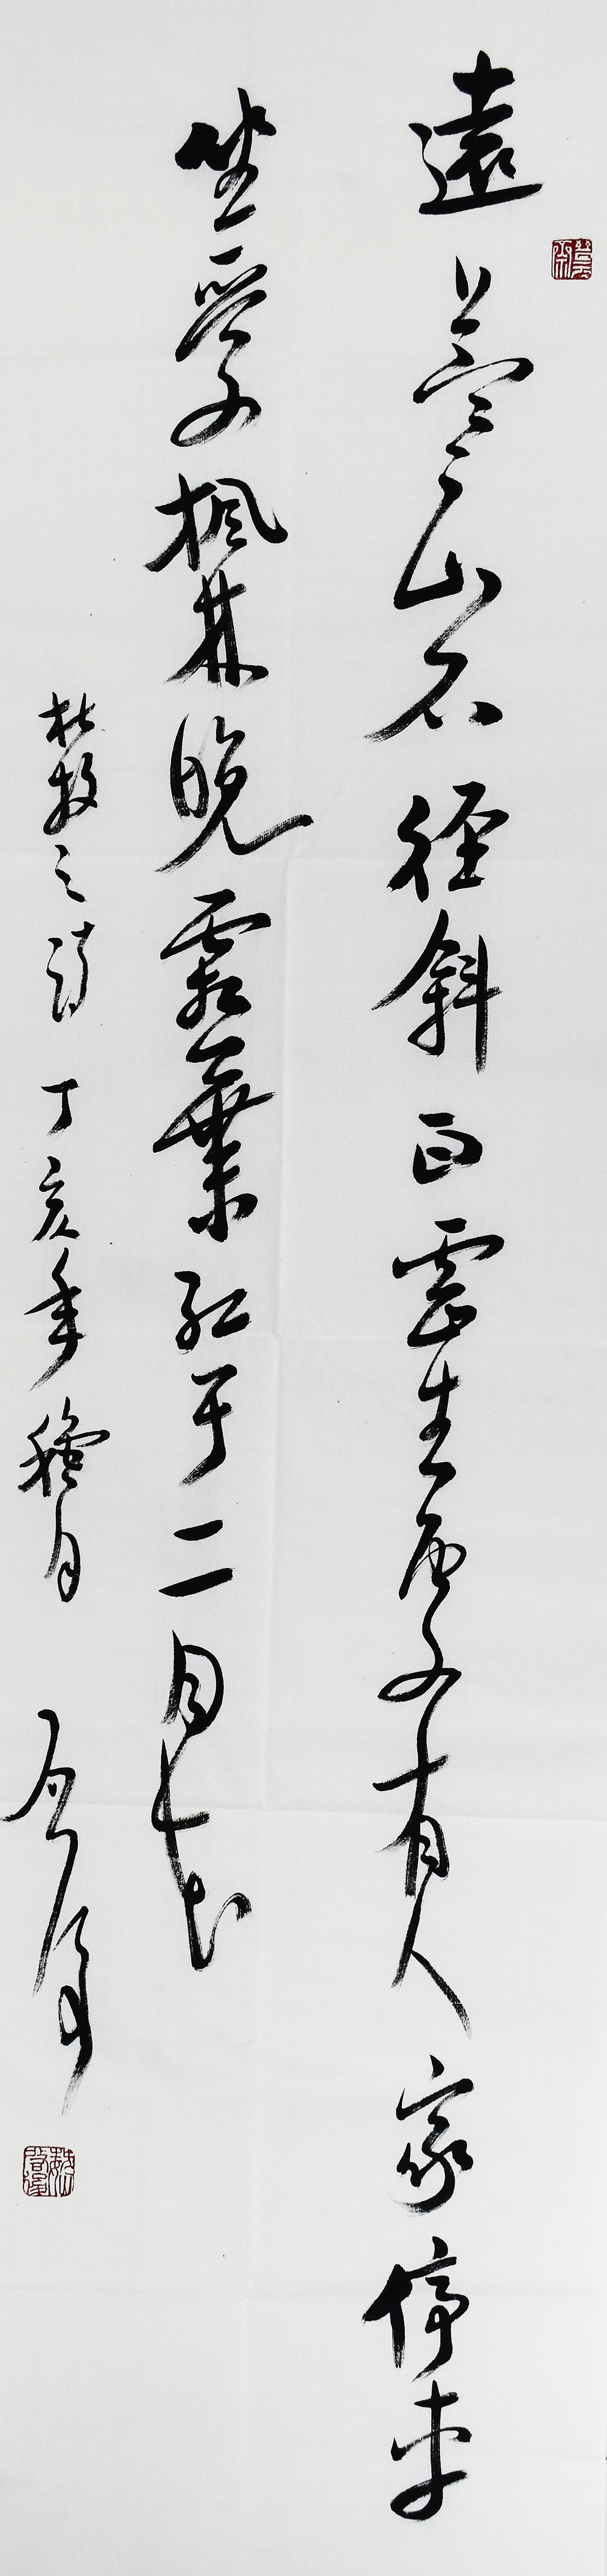 遠上寒山石徑斜白雲生處有人家停車
坐愛楓林晚霜葉紅于二月花
杜牧之詩 丁亥年臘月 啟後
魏啟後